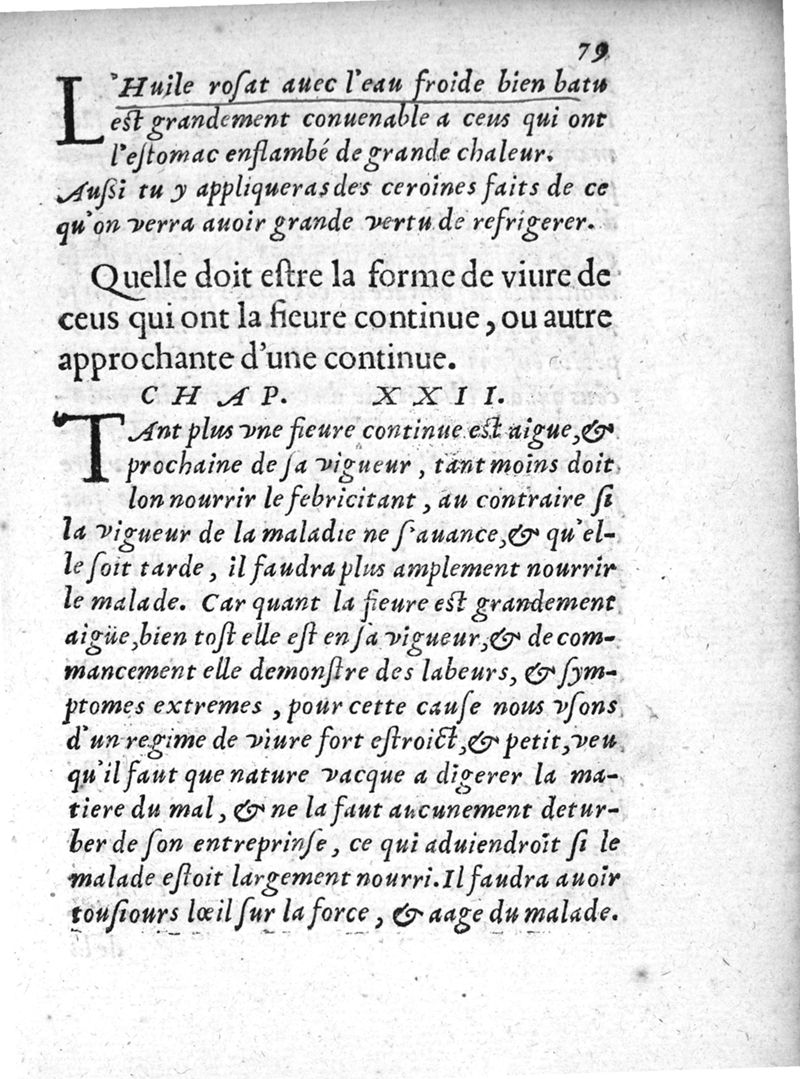 79
L'Huile roſat auec l'eau froide bien batu
eſt grandement conuenable a ceus qui ont
l'eſtomac enflambé de grande chaleur.
Auſsi tu y appliqueras des ceroines faits de ce
qu'on verra auoir grande vertu de refrigerer.
Quelle doit eſtre la forme de viure de
ceus qui ont la fieure continue, ou autre
approchante d'une continue.
CHAP. XXII.
TAnt plus vne fieure continue eſt aigue, &
prochaine de ſa vigueur, tant moins doit
lon nourrir le febricitant, au contraire ſi
la vigueur de la maladie ne ſ'auance, & qu'el-
le ſoit tarde, il faudra plus amplement nourrir
le malade. Car quant la fieure eſt grandement
aigüe, bien toſt elle eſt en ſa vigueur, & de com-
mancement elle demonſtre des labeurs, & ſym-
ptomes extremes, pour cette cauſe nous vſons
d'un regime de viure fort eſtroict, & petit, veu
qu'il faut que nature vacque a digerer la ma-
tiere du mal, & ne la faut aucunement detur-
ber de ſon entreprinſe, ce qui aduiendroit ſi le
malade eſtoit largement nourri. Il faudra auoir
touſiours lœil ſur la force, & aage du malade.